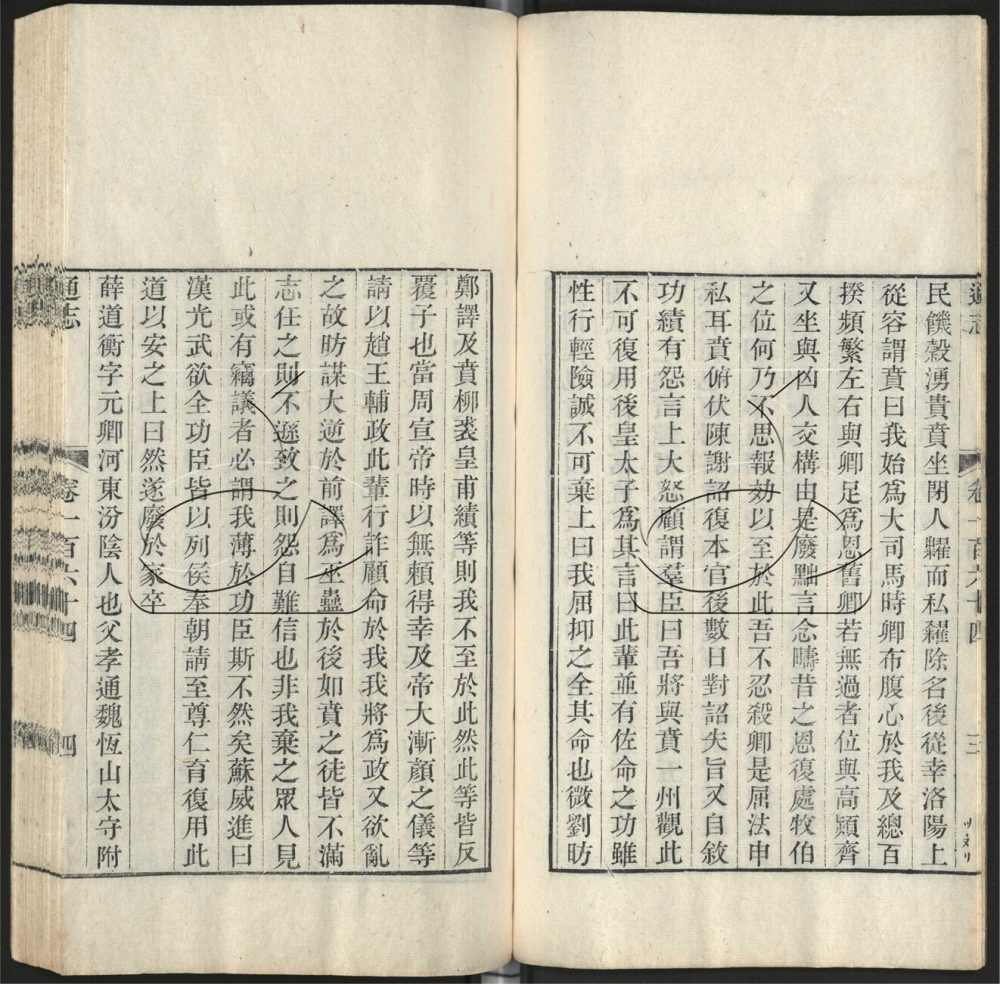 通志
卷一百六十四
三
民饑穀湧貴賁坐閉人糶而私糴除名後從幸洛陽上
從容謂賁曰我始爲大司馬時卿布腹心於我及總百
揆頻繁左右與卿足爲恩舊卿若無過者位與高熲齊
又坐與凶人交構由是廢黜言念疇昔之恩復處牧伯
之位何乃不思報効以至於此吾不忍殺卿是屈法申
私耳賁俯伏陳謝詔復本官後數日對詔失旨又自敘
功績有怨言上大怒顧謂羣臣曰吾將與賁一州觀此
不可復用後皇太子爲其言曰此輩並有佐命之功雖
性行輕險誠不可棄上曰我屈抑之全其命也微劉昉
鄭譯及賁柳裘皇甫績等則我不至於此然此等皆反
覆子也當周宣帝時以無賴得幸及帝大漸顏之儀等
請以趙王輔政此輩行詐顧命於我我將爲政又欲亂
之故昉謀大逆於前譯爲巫蠱於後如賁之徒皆不滿
志任之則不遜致之則怨自難信也非我棄之眾人見
此或有竊議者必謂我薄於功臣斯不然矣蘇威進曰
漢光武欲全功臣皆以列侯奉朝請至尊仁育復用此
道以安之上曰然遂廢於家卒
薛道衡字元卿河東汾陰人也父孝通魏恆山太守附
通志
卷一百六十四
四